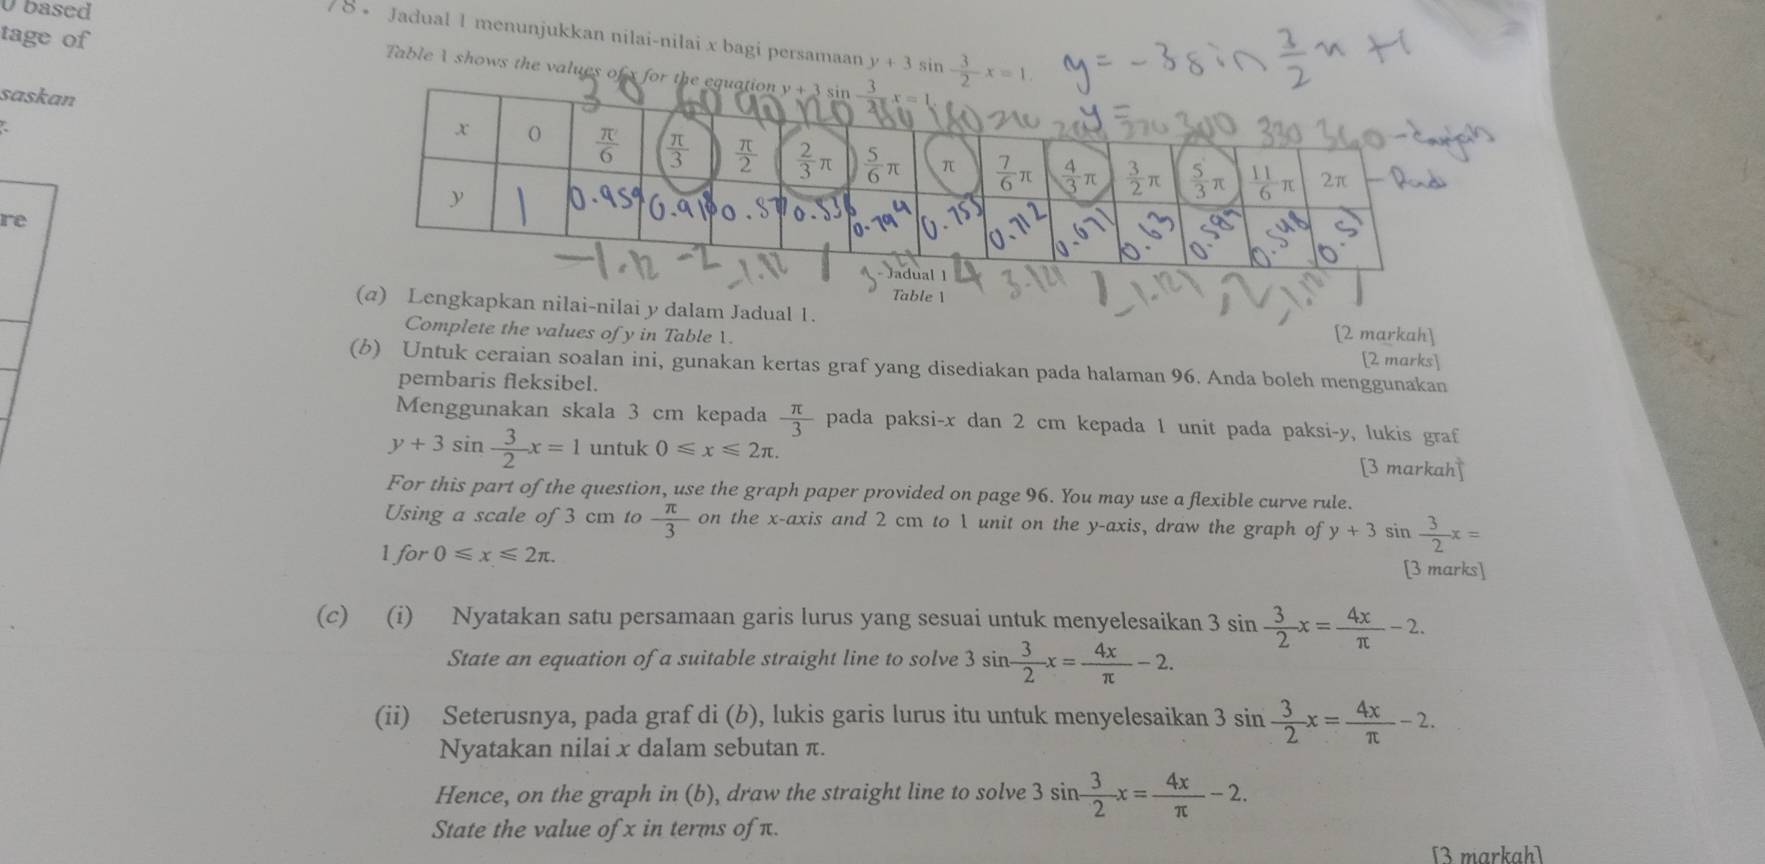 0 based
tage of
saskan
re
78. Jadual 1 menunjukkan nilai-nilai x bagi persamaan y + 3 sin 3/2 x = 1.
y = -3 sin 3/2 x + 1
Table 1 shows the values of x for the equation y + 3 sin 3/2 x = 1.
y =
30 60 90 120 150 180 210 240 270 300 330 360
x 0 π/6 π/3 π/2 2/3 π 5/6 π π 7/6 π 4/3 π 3/2 π 5/3 π 11/6 π 2π
y 1 0.959 0.918 0.877 0.836 0.794 0.753 0.712 0.671 0.63 0.589 0.548 0.51
-1.12 -2 -1.12 1 3.121 4 3.121 1 -1.121 -2 -1.121 1
Jadual 1
Table 1
(a) Lengkapkan nilai-nilai y dalam Jadual 1.
[2 markah]
Complete the values of y in Table 1.
[2 marks]
(b) Untuk ceraian soalan ini, gunakan kertas graf yang disediakan pada halaman 96. Anda boleh menggunakan
pembaris fleksibel.
Menggunakan skala 3 cm kepada π/3 pada paksi-x dan 2 cm kepada 1 unit pada paksi-y, lukis graf
y + 3 sin 3/2 x = 1 untuk 0 ⩽ x ⩽ 2π.
[3 markah]
For this part of the question, use the graph paper provided on page 96. You may use a flexible curve rule.
Using a scale of 3 cm to π/3 on the x-axis and 2 cm to 1 unit on the y-axis, draw the graph of y + 3 sin 3/2 x =
1 for 0 ⩽ x ⩽ 2π.
[3 marks]
(c) (i) Nyatakan satu persamaan garis lurus yang sesuai untuk menyelesaikan 3 sin 3/2 x = 4x/π - 2.
State an equation of a suitable straight line to solve 3 sin 3/2 x = 4x/π - 2.
(ii) Seterusnya, pada graf di (b), lukis garis lurus itu untuk menyelesaikan 3 sin 3/2 x = 4x/π - 2.
Nyatakan nilai x dalam sebutan π.
Hence, on the graph in (b), draw the straight line to solve 3 sin 3/2 x = 4x/π - 2.
State the value of x in terms of π.
[3 markah]